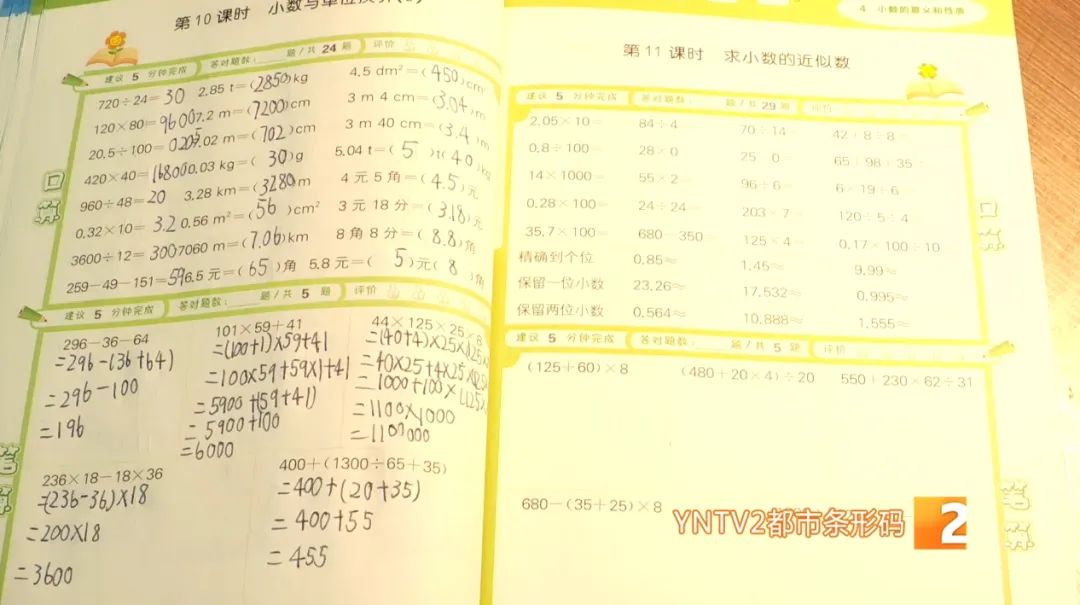 第 10 课时 小数与单位换算(2)
建议 5 分钟完成 答对题数: 题/共 24 题 评价
720÷24=30 2.85 t=(2850)kg 4.5 dm²=(450)cm²
120×80=9600 7.2 m=(7200)cm 3 m 4 cm=(3.04)m
20.5÷100=0.205 7.02 m=(702)cm 3 m 40 cm=(3.4)m
420×40=16800 0.03 kg=(30)g 5.04 t=(5)t(40)kg
960÷48=20 3.28 km=(3280)m 4 元 5 角=(4.5)元
0.32×10=3.2 0.56 m²=(56)cm² 3 元 18 分=(3.18)元
3600÷12=300 7060 m=(7.06)km 8 角 8 分=(8.8)角
259-49-151=59 6.5 元=(65)角 5.8 元=(5)元(8)角
口算
建议 5 分钟完成 答对题数: 题/共 5 题 评价
296-36-64 101×59+41 44×125×25×8
=296-(36+64) =(100+1)×59+41 =(40+4)×25×125
=296-100 =100×59+59×1+41 =40×25+4×25×125
=196 =5900+(59+41) =1000+100×1125
=5900+100 =1100×1000
=6000 =1100000
236×18-18×36 400+(1300÷65+35)
=(236-36)×18 =400+(20+35)
=200×18 =400+55
=3600 =455
笔算
4 小数的意义和性质
第 11 课时 求小数的近似数
建议 5 分钟完成 答对题数: 题/共 29 题 评价
2.05×10= 84÷4 70÷14= 42÷8÷8=
0.8÷100= 28×0 25 0= 65+98+35=
14×1000= 55×2= 96÷6= 6×19÷6=
0.28×100= 24÷24= 203×7= 120÷5÷4
35.7×100= 680-350= 125×4= 0.17×100÷10=
精确到个位 0.85≈ 1.45≈ 9.99≈
保留一位小数 23.26≈ 17.532≈ 0.995≈
保留两位小数 0.564≈ 10.888≈ 1.555≈
口算
建议 5 分钟完成 答对题数: 题/共 5 题 评价
(125+60)×8 (480+20×4)÷20 550+230×62÷31
680-(35+25)×8
笔算
YNTV2都市条形码 2